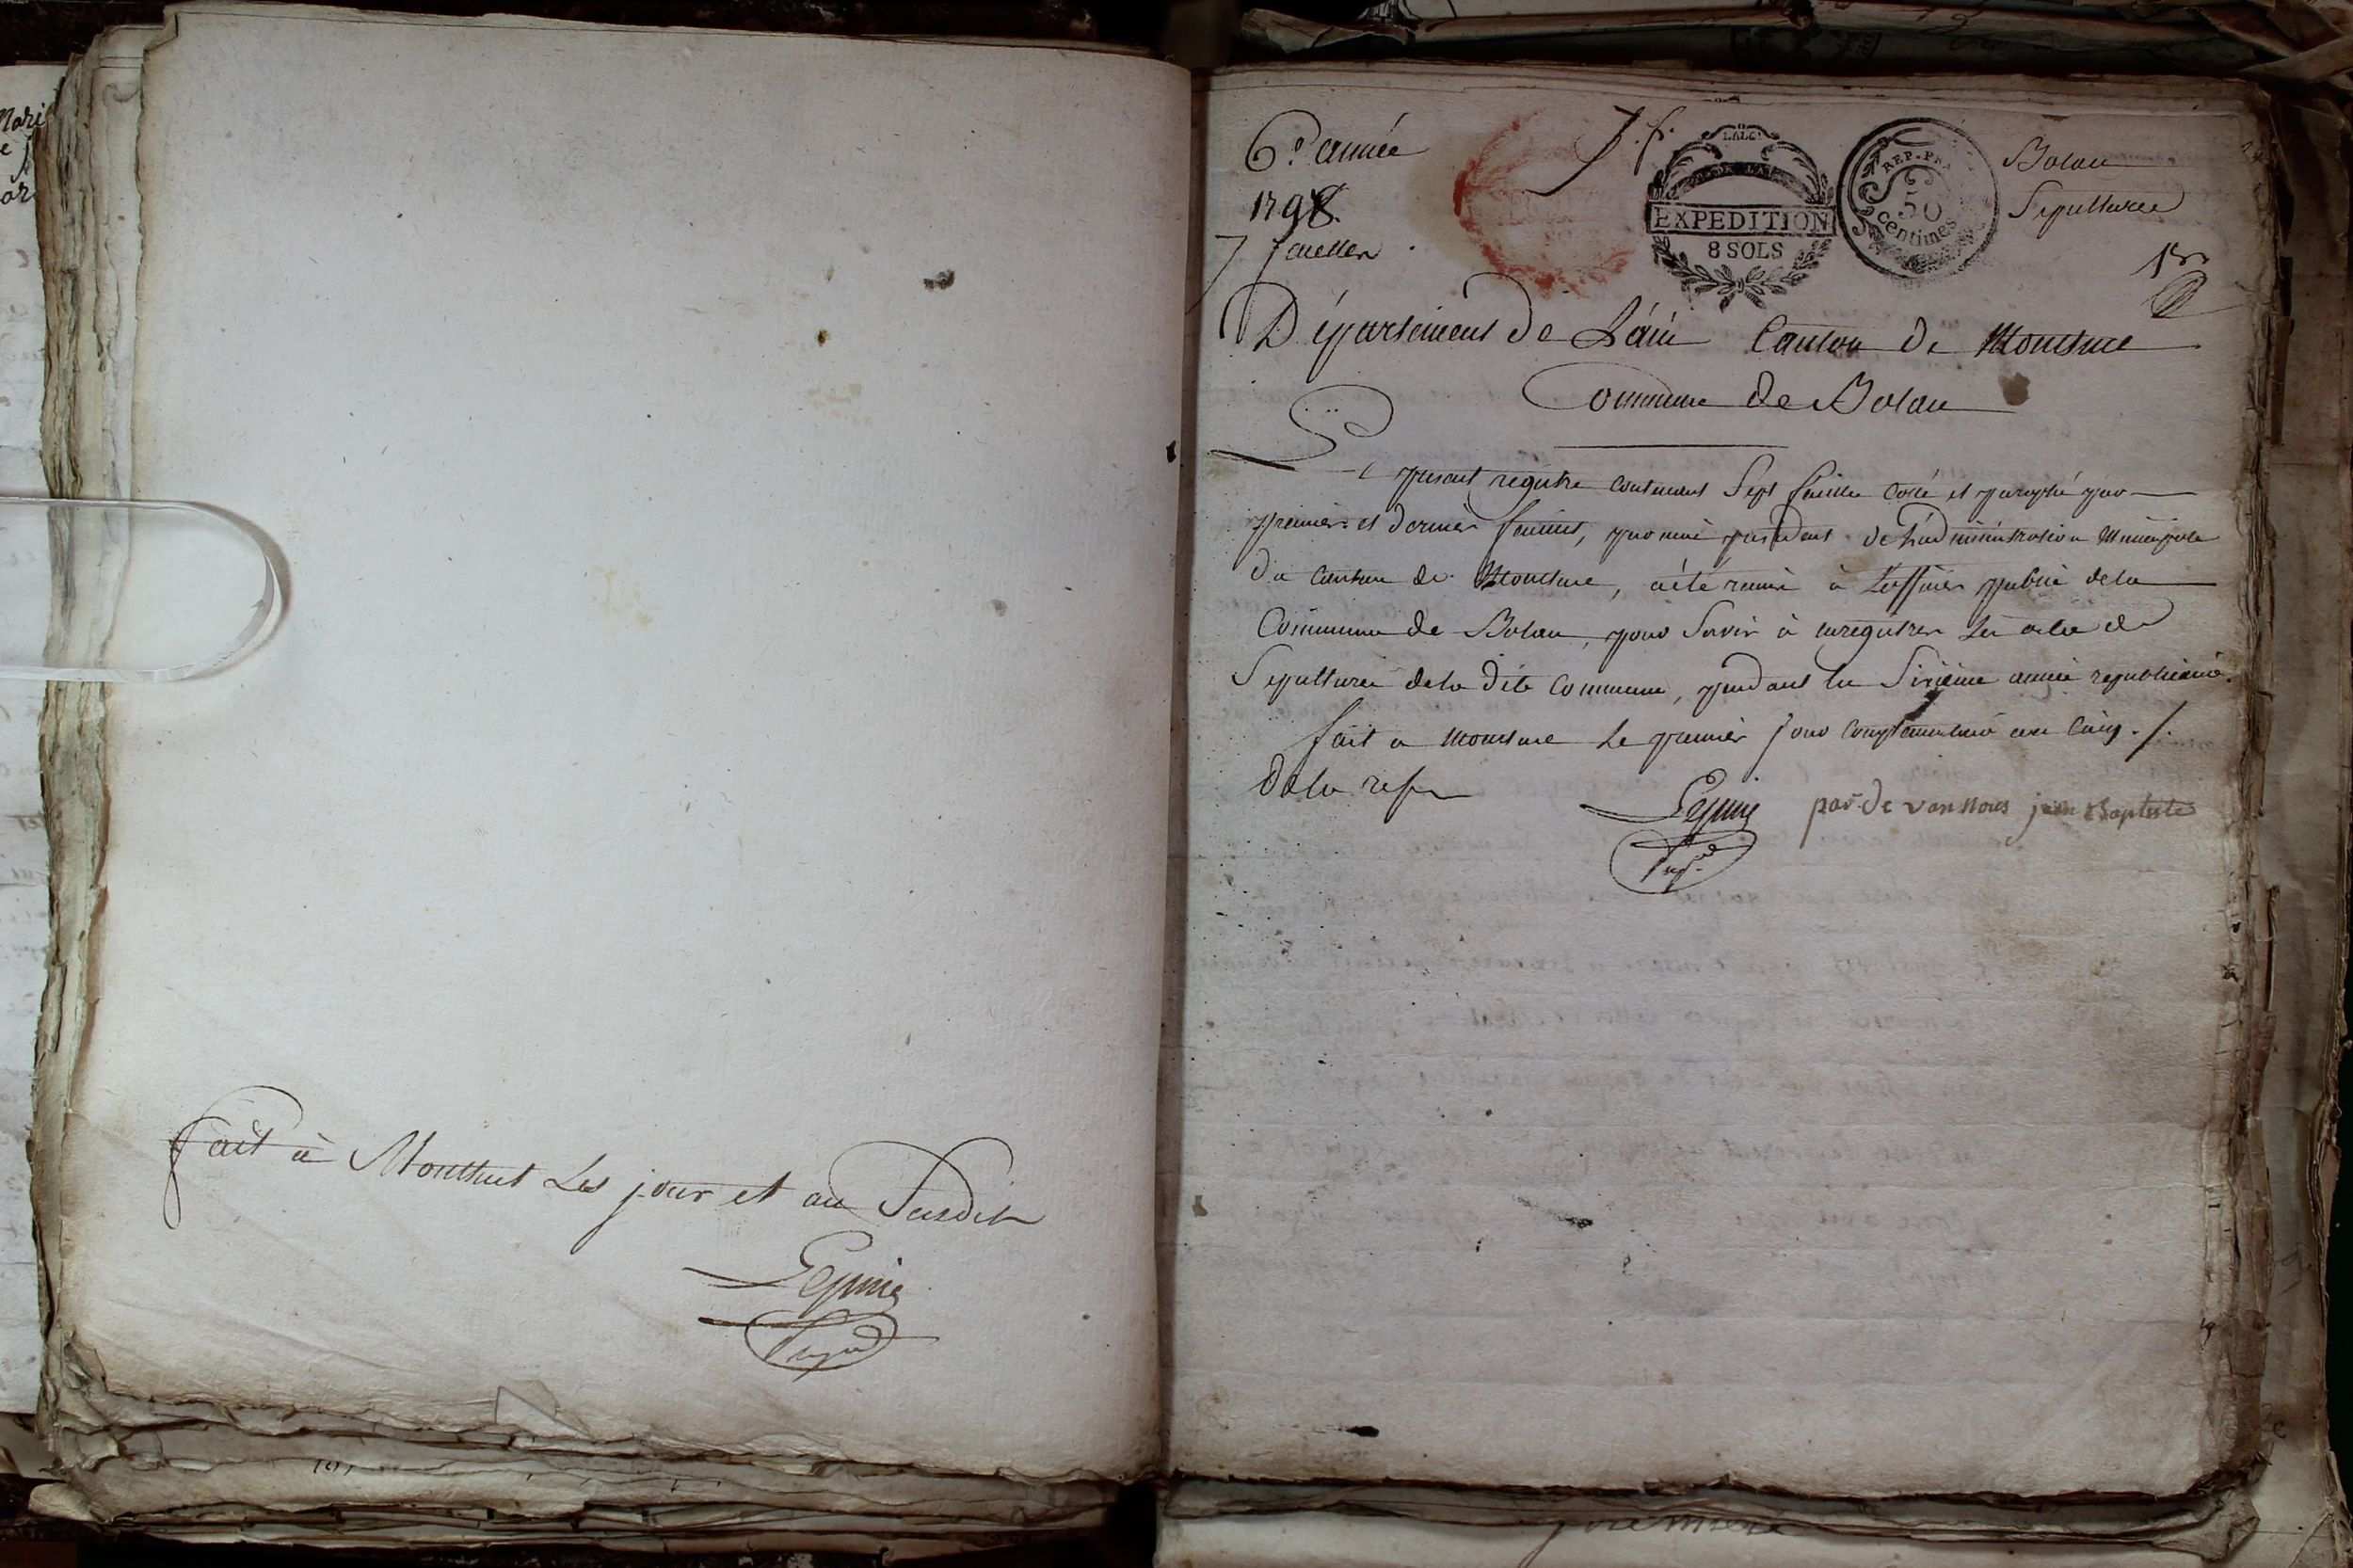 fait à Montluel Les jour et an Susdit
Lepine
6.e année
1798.
7 feuilles
J. f.
EXPEDITION
8 SOLS
REP. FRA
50
centimes
Balan
Sepultures
1er
Département de L'ain Canton de Montluel
Commune de Balan
Le present registre contenant Sept feuilles Cotté et paraphé par
premier et dernier feuillets, par moi president de L'administration Municipale
du Canton de Montluel, a été remis à L'officier public de la
Commune de Balan, pour Servir à enregistrer Les actes de
Sepultures de la dite Commune, pendant la Sixieme année republicaine.
fait a montluel Le premier jour Complementaire an Cinq ./.
de la rep
Lepine par de vannoies jean Baptiste
premiere